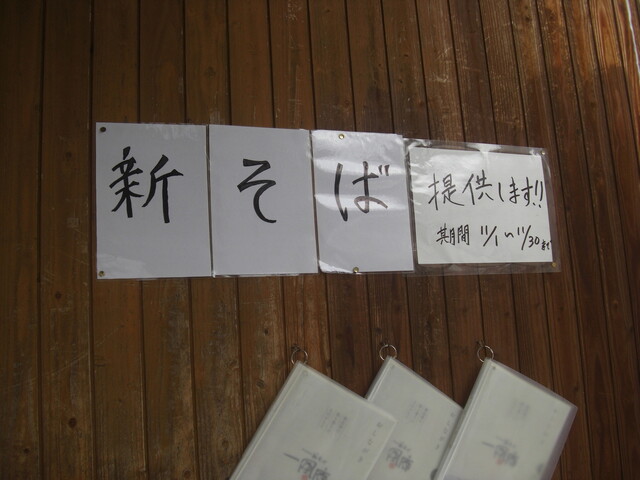 新そば
提供します!!
期間 11/1〜11/30まで